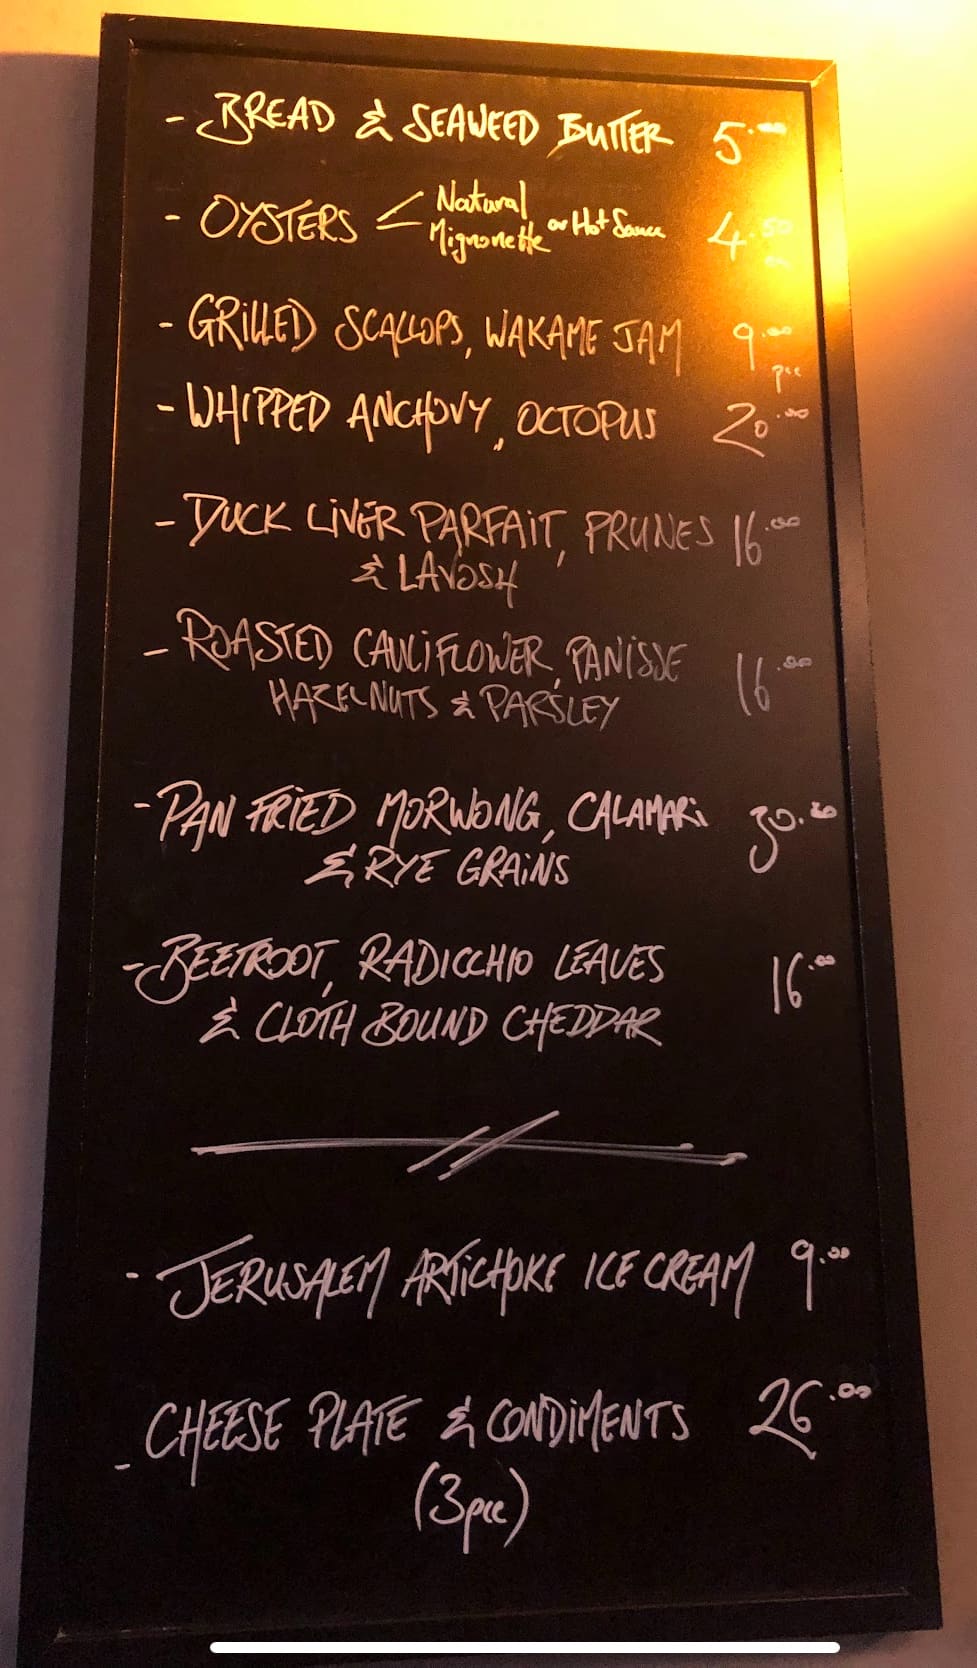 - BREAD & SEAWEED BUTTER 5.00
- OYSTERS < Natural
Mignonette or Hot Sauce 4.50
ea
- GRILLED SCALLOPS, WAKAME JAM 9.00
pce
- WHIPPED ANCHOVY, OCTOPUS 20.00
- DUCK LIVER PARFAIT, PRUNES 16.00
& LAVOSH
- ROASTED CAULIFLOWER, PANISSE
HAZELNUTS & PARSLEY 16.00
- PAN FRIED MORWONG, CALAMARI 30.00
& RYE GRAINS
- BEETROOT, RADICCHIO LEAVES 16.00
& CLOTH BOUND CHEDDAR
- JERUSALEM ARTICHOKE ICE CREAM 9.00
- CHEESE PLATE & CONDIMENTS 26.00
(3pce)